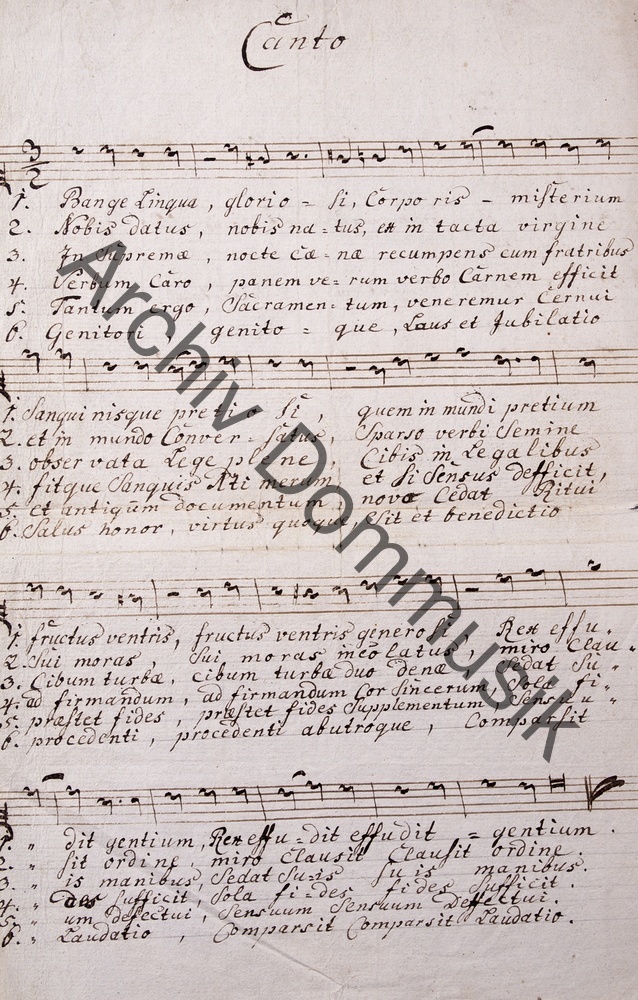 Canto
3/2
1. Pange Lingua, glorio = si, Corpo ris - misterium
2. Nobis datus, nobis na = tus, ex in tacta virgine
3. In Supremæ, nocte Cæ = næ recumpens cum fratribus
4. Verbum Caro, panem ve = rum verbo Carnem efficit
5. Tantum ergo, Sacramen = tum, veneremur Cernui
6. Genitori genito = que, Laus et Jubilatio
1. Sangui nisque preti o si, quem in mundi pretium
2. et in mundo Conver = satus, Sparso verbi Semine
3. obser vata Lege ple ne, Cibis in Legalibus
4. fitque Sanguis merum et si Sensus defficit,
5. et antiqum documentum novo Cedat Ritui
6. Salus honor, virtus quoque, Sit et benedictio
1. fructus ventris, fructus ventris genero si, Rex effu =
2. Sui moras, Sui moras incolatus, miro Clau =
3. Cibum turbæ, cibum turbæ duo denæ Sedat Su =
4. ad firmandum, ad firmandum Cor Sincerum, Sola fi =
5. præstet fides, præstet fides Supplementum Sensu u =
6. procedenti, procedenti abutroque, Comparsit
1. " dit gentium, Rex effu = dit effudit = gentium.
2. " sit ordine, miro Clausit Clausit ordine.
3. " is manibus, Sedat Su = is su is manibus.
4. " des Sufficit, Sola fi = des fides Sufficit.
5. " um defectui, Sensuum Sensuum Deffectui.
6. " Laudatio, Comparsit Comparsit Laudatio.
Archiv Dommusik